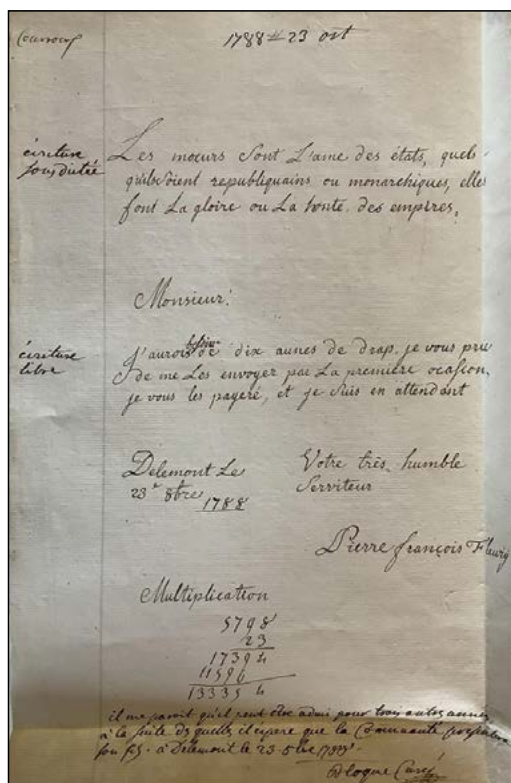 1788 23 oct
écriture
sous dictée
Les mœurs sont L'ame des états, quels
qu'ils soient republiquains ou monarchiques, elles
font La gloire ou La honte des empires,
Monsieur!
écriture
libre
besoin
J'aurois de dix aunes de drap. je vous prie
de me Les envoyer par La première ocasion,
je vous les payeré, et je suis en attendant
Delemont Le
23e 8bre
1788
Votre très humble
serviteur
Pierre françois Fleury
Multiplication
5798
23
17394
11596
133354
il me paroit qu'il peut être admi pour trois autres années
à la suite des quelles il espere que la Communauté
son fils. à Delemont le 23
Bloque Curé